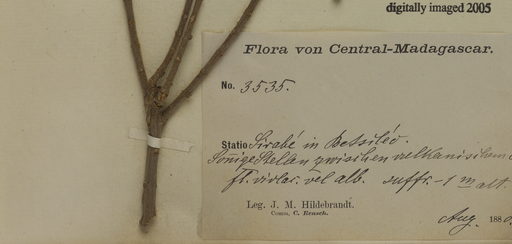 digitally imaged 2005
Flora von Central-Madagascar.
No. 3535.
Statio Sirabé in Betsiléo.
Sonige Stellen zwischen vulkanischem
fl. violac. vel alb. suffr. - 1 m alt.
Leg. J. M. Hildebrandt.
Comm. C. Rensch.
Aug. 1880.